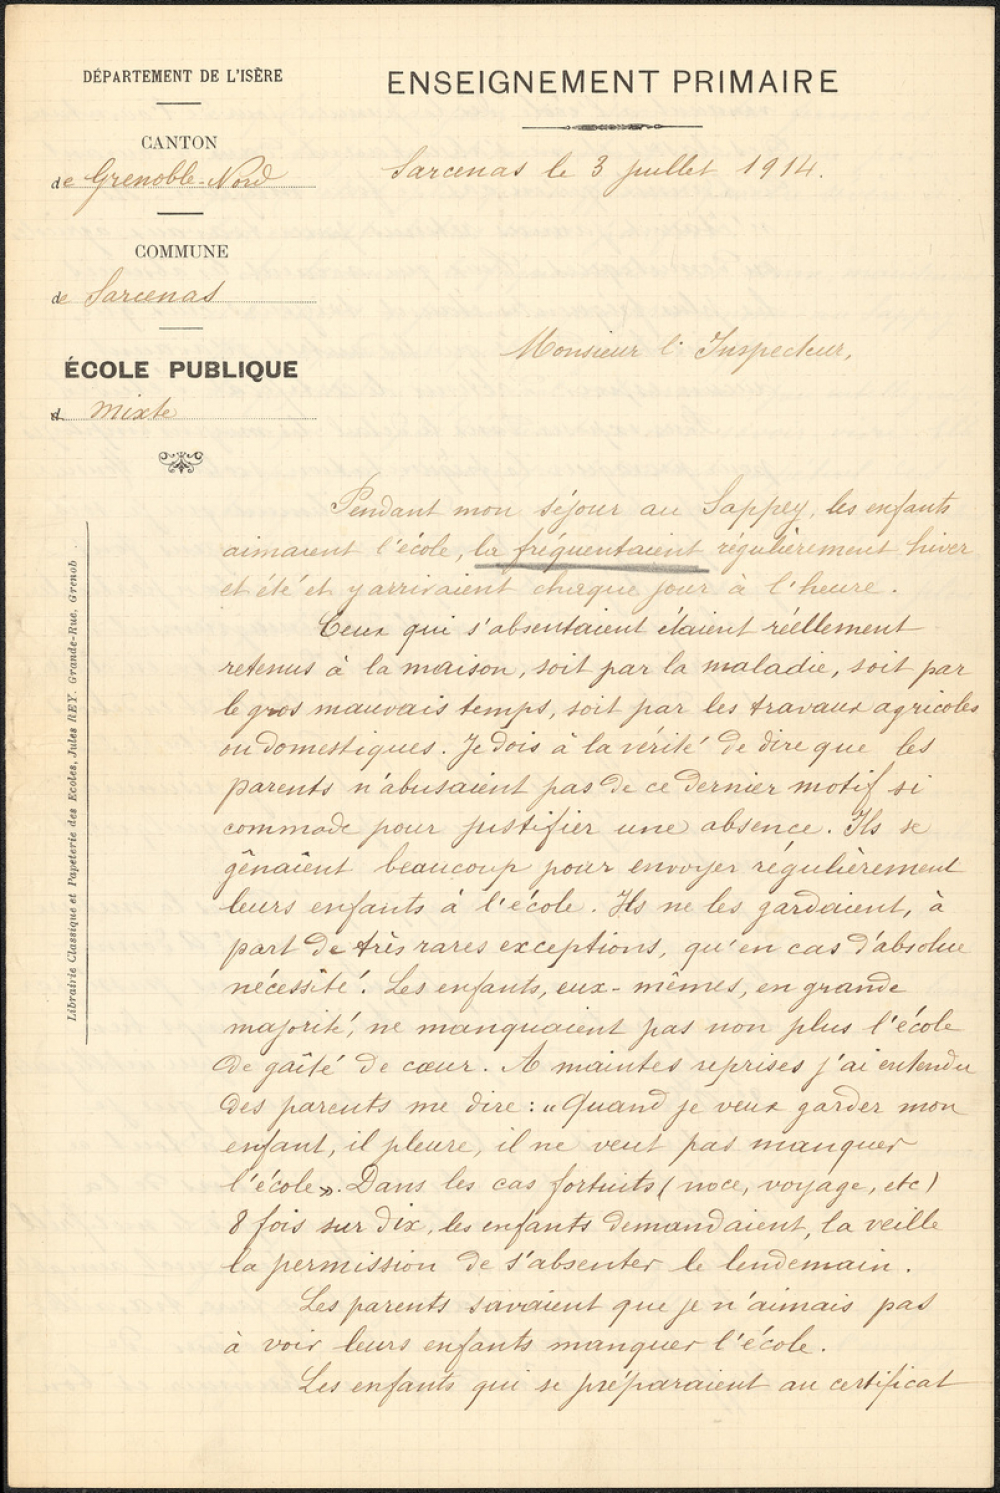 DÉPARTEMENT DE L'ISÈRE
CANTON
de Grenoble-Nord
COMMUNE
de Sarcenas
ÉCOLE PUBLIQUE
d mixte
Librairie Classique et Papeterie des Ecoles, Jules REY. Grande-Rue, Grenob
ENSEIGNEMENT PRIMAIRE
Sarcenas le 3 juillet 1914.
Monsieur l'Inspecteur,
Pendant mon séjour au Sappey, les enfants
aimaient l'école, la fréquentaient régulièrement hiver
et été et y arrivaient chaque jour à l'heure.
Ceux qui s'absentaient étaient réellement
retenus à la maison, soit par la maladie, soit par
le gros mauvais temps, soit par les travaux agricoles
ou domestiques. Je dois à la vérité de dire que les
parents n'abusaient pas de ce dernier motif si
commode pour justifier une absence. Ils se
gênaient beaucoup pour envoyer régulièrement
leurs enfants à l'école. Ils ne les gardaient, à
part de très rares exceptions, qu'en cas d'absolue
nécessité. Les enfants, eux-mêmes, en grande
majorité, ne manquaient pas non plus l'école
de gaîté de cœur. A maintes reprises j'ai entendu
des parents me dire : « Quand je veux garder mon
enfant, il pleure, il ne veut pas manquer
l'école ». Dans les cas fortuits (noce, voyage, etc)
8 fois sur dix, les enfants demandaient, la veille
la permission de s'absenter le lendemain.
Les parents savaient que je n'aimais pas
à voir leurs enfants manquer l'école.
Les enfants qui se préparaient au certificat